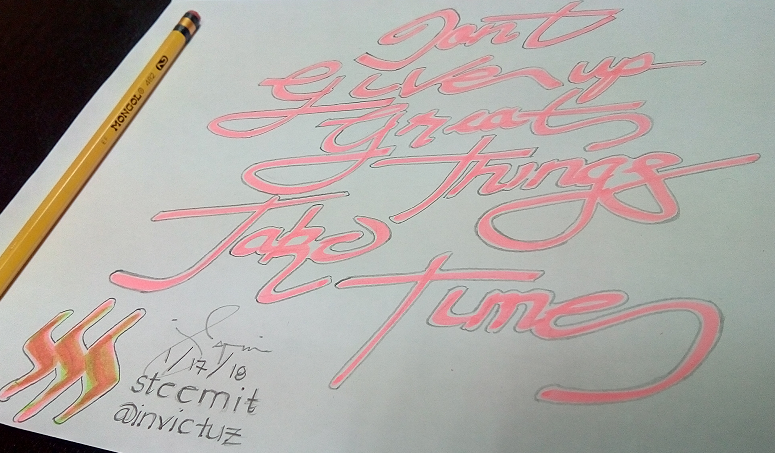 Dont
Give up
Great
Things
Take
Time
MONGOL 482 2
1/17/18
steemit
@invictuz